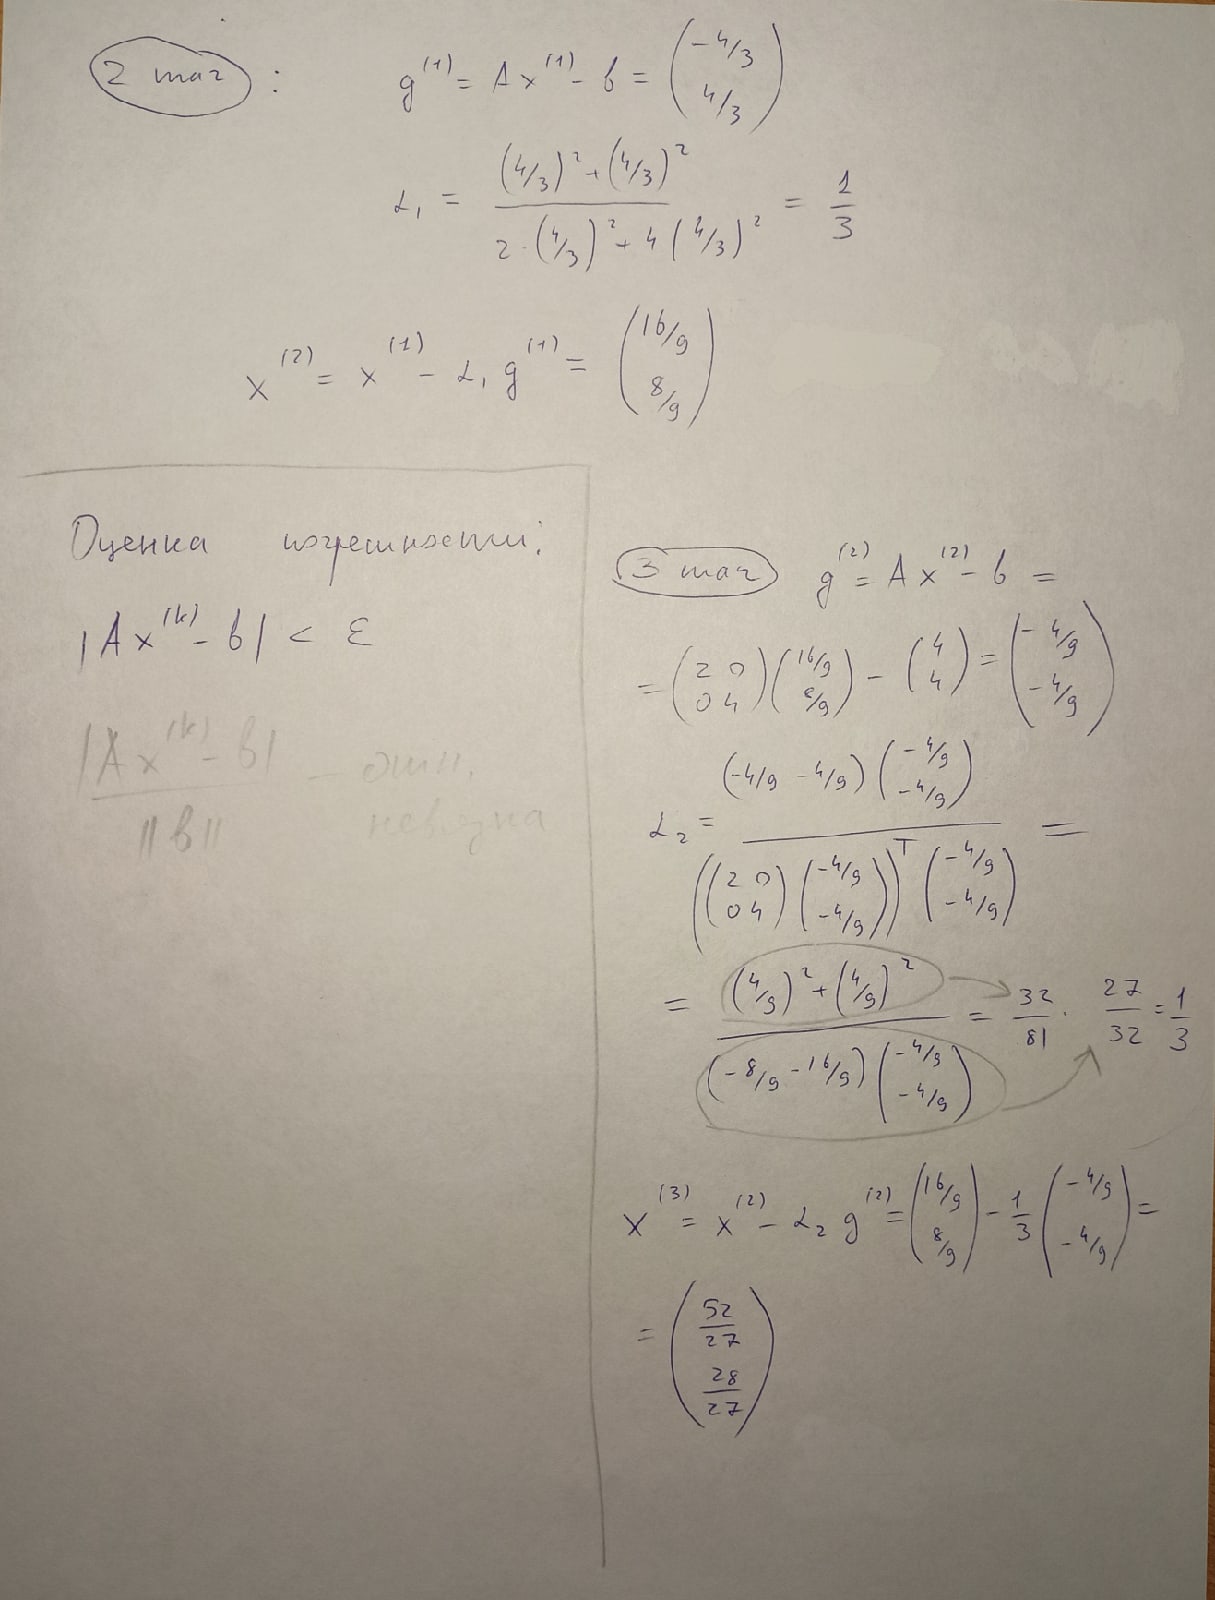 2 шаг : g⁽¹⁾ = Ax⁽¹⁾ - b = (-4/3 4/3)
α₁ = ((4/3)² + (4/3)²) / (2·(4/3)² + 4(4/3)²) = 1/3
x⁽²⁾ = x⁽¹⁾ - α₁ g⁽¹⁾ = (16/9 8/9)
Оценка погрешности:
|Ax⁽ᵏ⁾ - b| < ε
|Ax⁽ᵏ⁾ - b| / ||b|| — отн.
невязка
3 шаг g⁽²⁾ = Ax⁽²⁾ - b =
= (2 0 0 4)(16/9 8/9) - (4 4) = (-4/9 -4/9)
α₂ = (-4/9 -4/9)(-4/9 -4/9) / ((2 0 0 4)(-4/9 -4/9))ᵀ(-4/9 -4/9) =
= ((4/9)² + (4/9)²) / (-8/9 -16/9)(-4/9 -4/9) = 32/81 · 27/32 = 1/3
x⁽³⁾ = x⁽²⁾ - α₂ g⁽²⁾ = (16/9 8/9) - 1/3 (-4/9 -4/9) =
= (52/27 28/27)